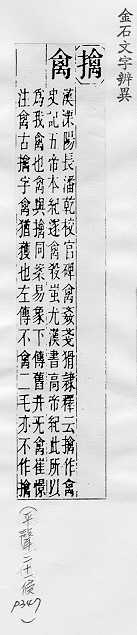 金石文字辨異
擒
禽
漢溧陽長潘乾校官碑禽姦戔猾隸釋云擒作禽
史記五帝本紀遂禽殺蚩尤漢書高帝紀此所以
為我禽也禽與擒同家易象下傳舊井无禽崔憬
注禽古擒字禽猶獲也左傳不禽二毛亦不作擒
(平聲二十一侵
p347)